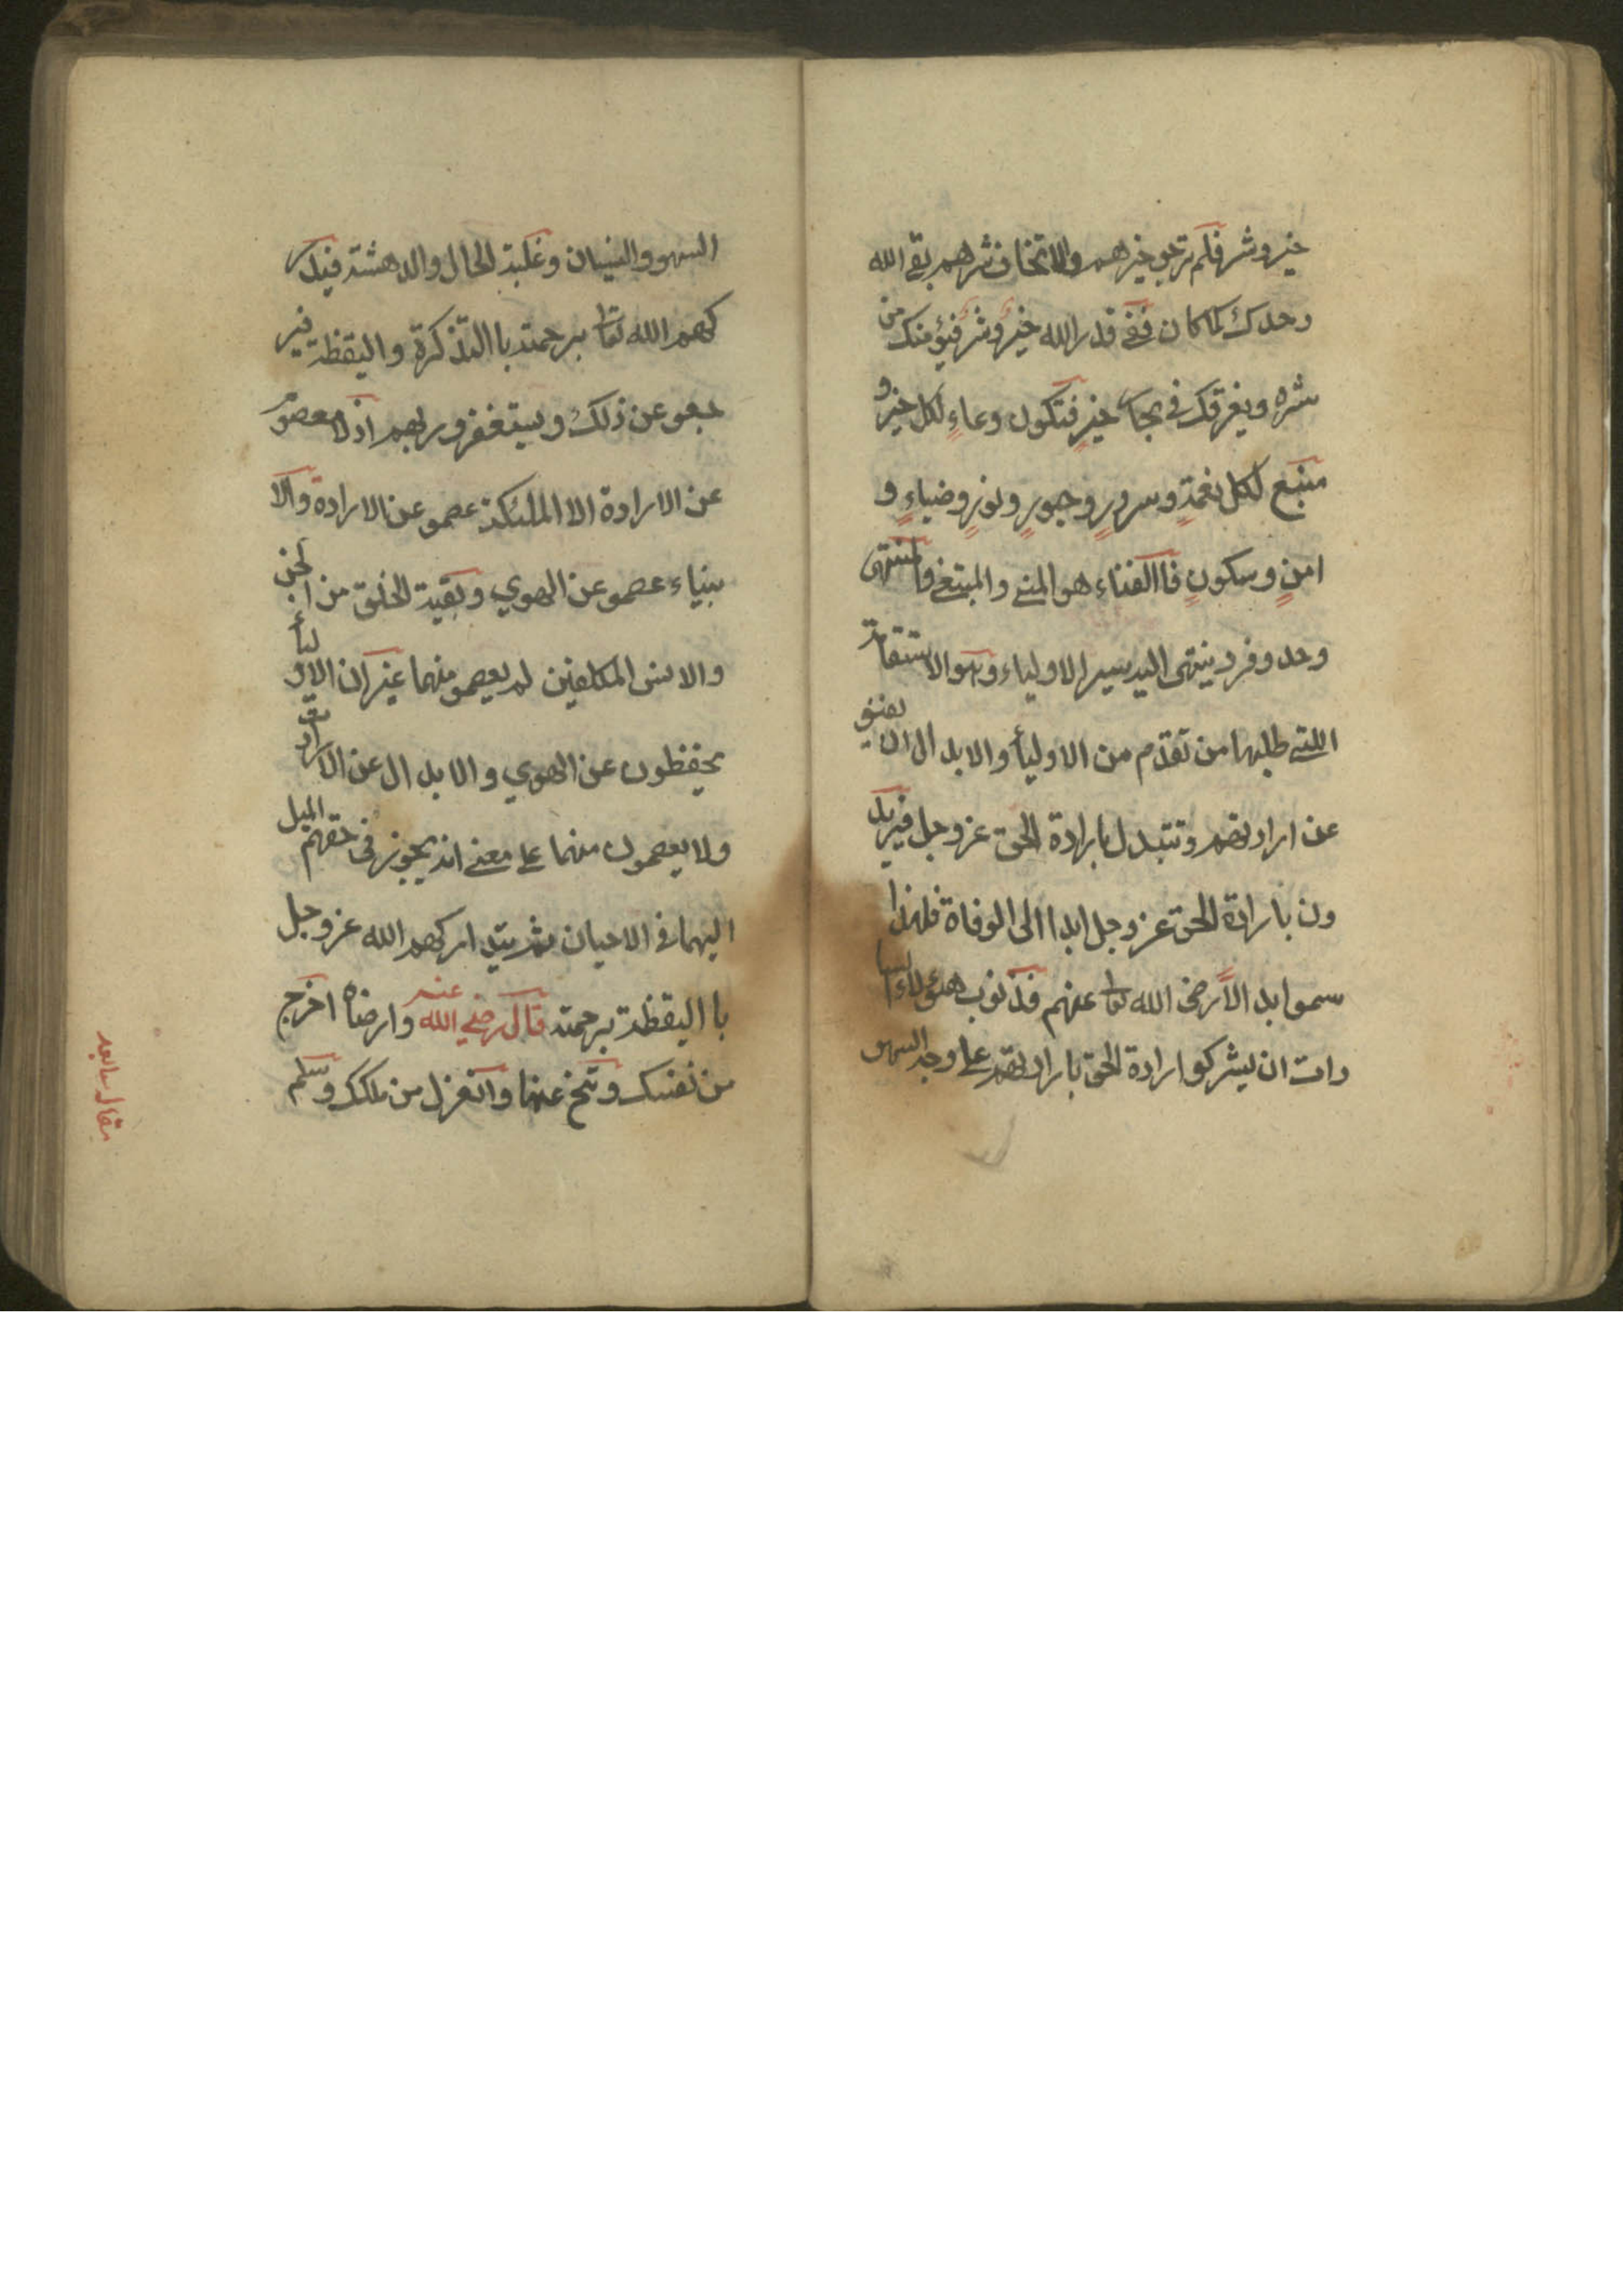 خير وشر فلم ترجو خيرهم والا تخاف شرهم بقي الله
وحدك كما كان ففي قدر الله خير وشر فيؤمنك من
شره ويغرقك في بحار خير فتكون وعاء لكل خير و
منبع لكل نعمة وسرور وحبور ونور وضياء و
امن وسكون فاالفناء هو المني والمبتغي والمنتهى
وحد ومرد ينتهى اليه سير الاولياء وهو الاستقامة
اللتي طلبها من تقدم من الاوليأ والابدال ان يفنو
عن ارادتهم وتتبدل بارادة الحق عز وجل فيريد
ون بارادة الحق عز وجل ابدا الى الوفاة فلهذا
سموا ابدالاً رضى الله تعا عنهم فذنوب هؤلاء السا
دات ان يشركو ارادة الحق بارادتهم على وجه السهو
السهو والنسيان وغلبة الحال والدهشة فيدر
كهم الله تعا برحمته باالتذكرة واليقظة فير
جعو عن ذلك ويستغفرو ربهم اذ لا معصوم
عن الارادة الا الملئكة عصمو عن الارادة والا
نبياء عصمو عن الهوي وبقية الخلق من الجن
والانس المكلفين لم يعصمو منهما غير ان الاوليأ
يحفظون عن الهوي والابدال عن الارادة
ولا يعصمون منهما على معني انه يجوز في حقهم الميل
اليهما في الاحيان ثم يتداركهم الله عز وجل
باليقظة برحمته قال رضي الله عنه وارضاه اخرج
من نفسك وتنح عنها وانعزل من ملكك وسلم
مقال سابع